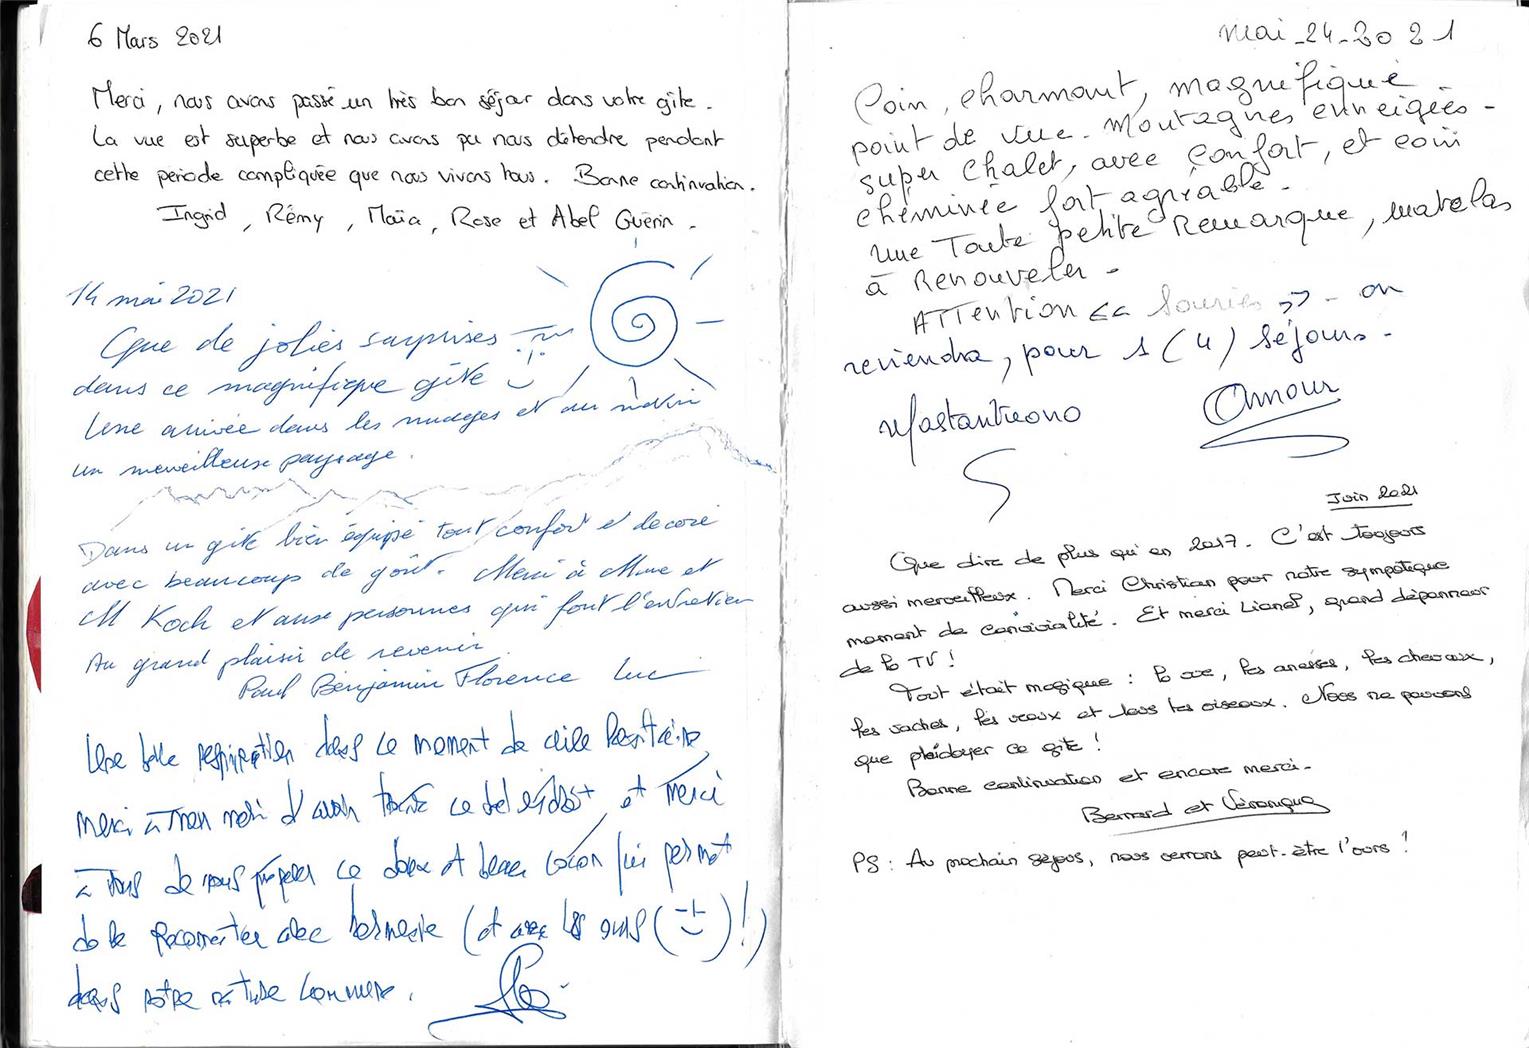 6 Mars 2021
Merci, nous avons passé un très bon séjour dans votre gîte.
La vue est superbe et nous avons pu nous détendre pendant
cette période compliquée que nous vivons tous. Bonne continuation.
Ingrid, Rémy, Maïa, Rose et Abel Guérin.
14 mai 2021
Que de jolies surprises
dans ce magnifique gîte
Une arrivée dans les nuages et au matin
un merveilleux paysage.
Dans un gîte bien équipé tout confort et décoré
avec beaucoup de goût. Merci à Mme et
M Koch et aux personnes qui font l'entretien
Au grand plaisir de revenir.
Paul Benjamin Florence Luc
Une belle respiration dans ce moment de
merci à mon mari d'avoir trouvé ce bel endroit et merci
à vous de nous proposer ce doux et beau cocon qui permet
de se reconnecter avec (et avec les ours !)
dans notre nature commune.
mai-24-2021
Coin, charmant, magnifique
point de vue. Montagnes enneigées -
super chalet, avec confort, et coin
cheminée fort agréable -
une Toute petite Remarque, matelas
à Renouveler -
ATTention << Souris >> - on
reviendra, pour 1 (4) séjours -
Mastantuono
Amour
Juin 2021
Que dire de plus qu'en 2017. C'est toujours
aussi merveilleux. Merci Christian pour notre sympatique
moment de convivialité. Et merci Lionel, grand dépanneur
de la TV !
Tout était magique : la vue, les anesses, les chevaux,
les vaches, les veaux et tous les oiseaux. Nous ne pouvons
que plaidoyer ce gîte !
Bonne continuation et encore merci.
Bernard et Véronique
PS : Au prochain séjour, nous verrons peut-être l'ours !